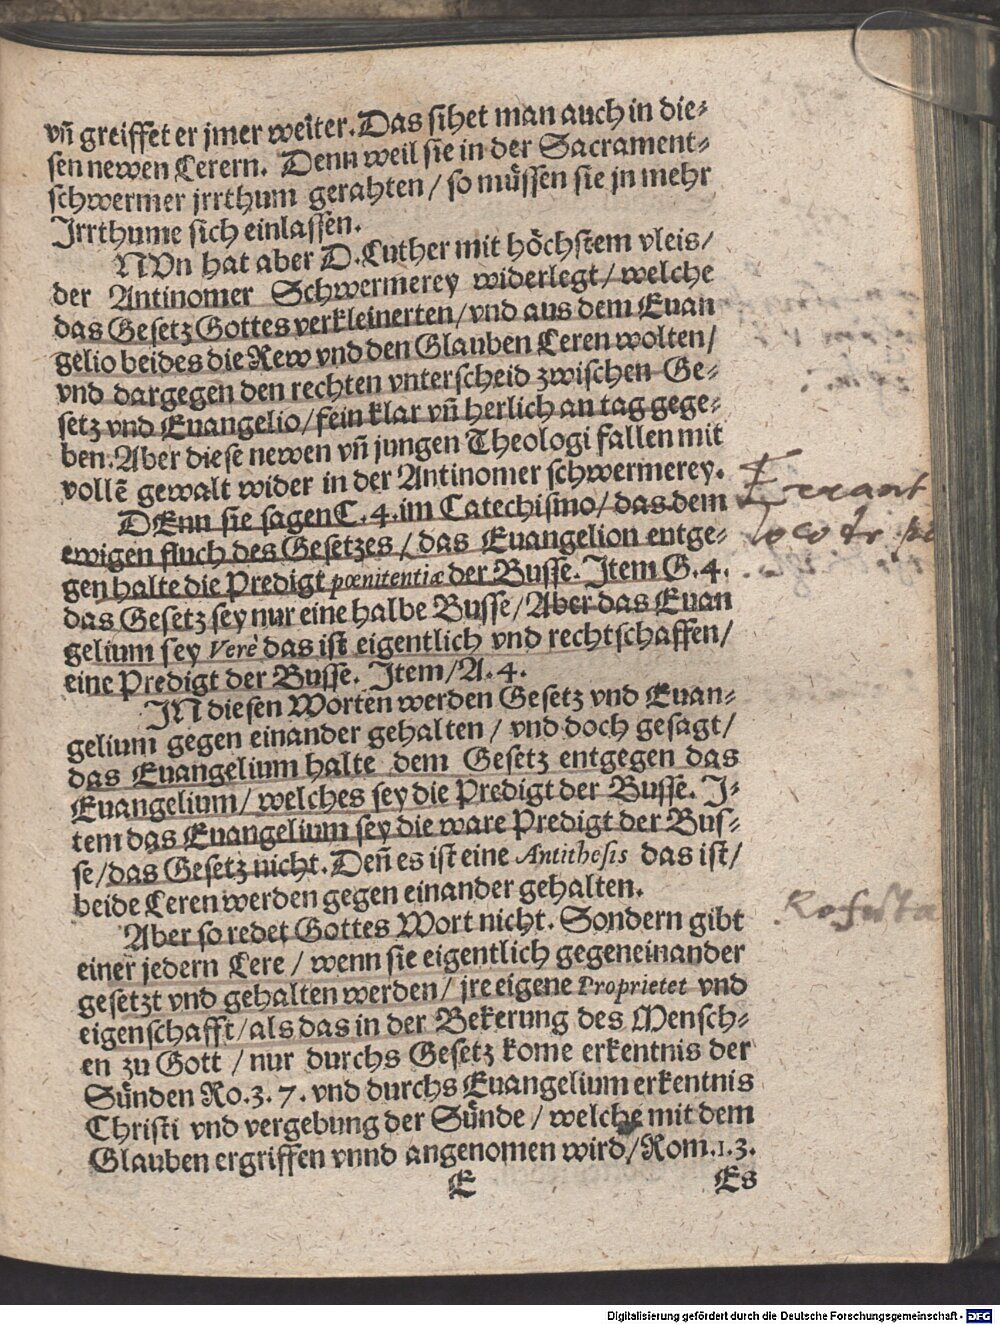 vñ greiffet er jmer weiter. Das sihet man auch in die⸗
sen newen Lerern. Denn weil sie in der Sacrament⸗
schwermer jrrthum gerahten / so müssen sie jn mehr
Jrrthume sich einlassen.
NVn hat aber D. Luther mit höchstem vleis /
der Antinomer Schwermerey widerlegt / welche
das Gesetz Gottes verkleinerten / vnd aus dem Euan
gelio beides die Rew vnd den Glauben Leren wolten /
vnd dargegen den rechten vnterscheid zwischen Ge⸗
setz vnd Euangelio / fein klar vñ herlich an tag gege⸗
ben. Aber diese newen vñ jungen Theologi fallen mit
vollē gewalt wider in der Antinomer schwermerey.
DEnn sie sagen C. 4. im Catechismo / das dem
ewigen fluch des Gesetzes / das Euangelion entge⸗
gen halte die Predigt pœnitentiæ der Busse. Item G. 4.
das Gesetz sey nur eine halbe Busse / Aber das Euan
gelium sey Verè das ist eigentlich vnd rechtschaffen /
eine Predigt der Busse. Item / A. 4.
JN diesen Worten werden Gesetz vnd Euan⸗
gelium gegen einander gehalten / vnd doch gesagt /
das Euangelium halte dem Gesetz entgegen das
Euangelium / welches sey die Predigt der Busse. J⸗
tem das Euangelium sey die ware Predigt der Bus⸗
se / das Gesetz nicht. Deñ es ist eine Antithesis das ist /
beide Leren werden gegen einander gehalten.
Aber so redet Gottes Wort nicht. Sondern gibt
einer jedern Lere / wenn sie eigentlich gegeneinander
gesetzt vnd gehalten werden / jre eigene Proprietet vnd
eigenschafft / als das in der Bekerung des Mensch⸗
en zu Gott / nur durchs Gesetz kome erkentnis der
Sünden Ro. 3. 7. vnd durchs Euangelium erkentnis
Christi vnd vergebung der Sünde / welche mit dem
Glauben ergriffen vnnd angenomen wird / Rom. 1. 3.
E
Es
Errant
Refuta
Digitalisierung gefördert durch die Deutsche Forschungsgemeinschaft - DFG